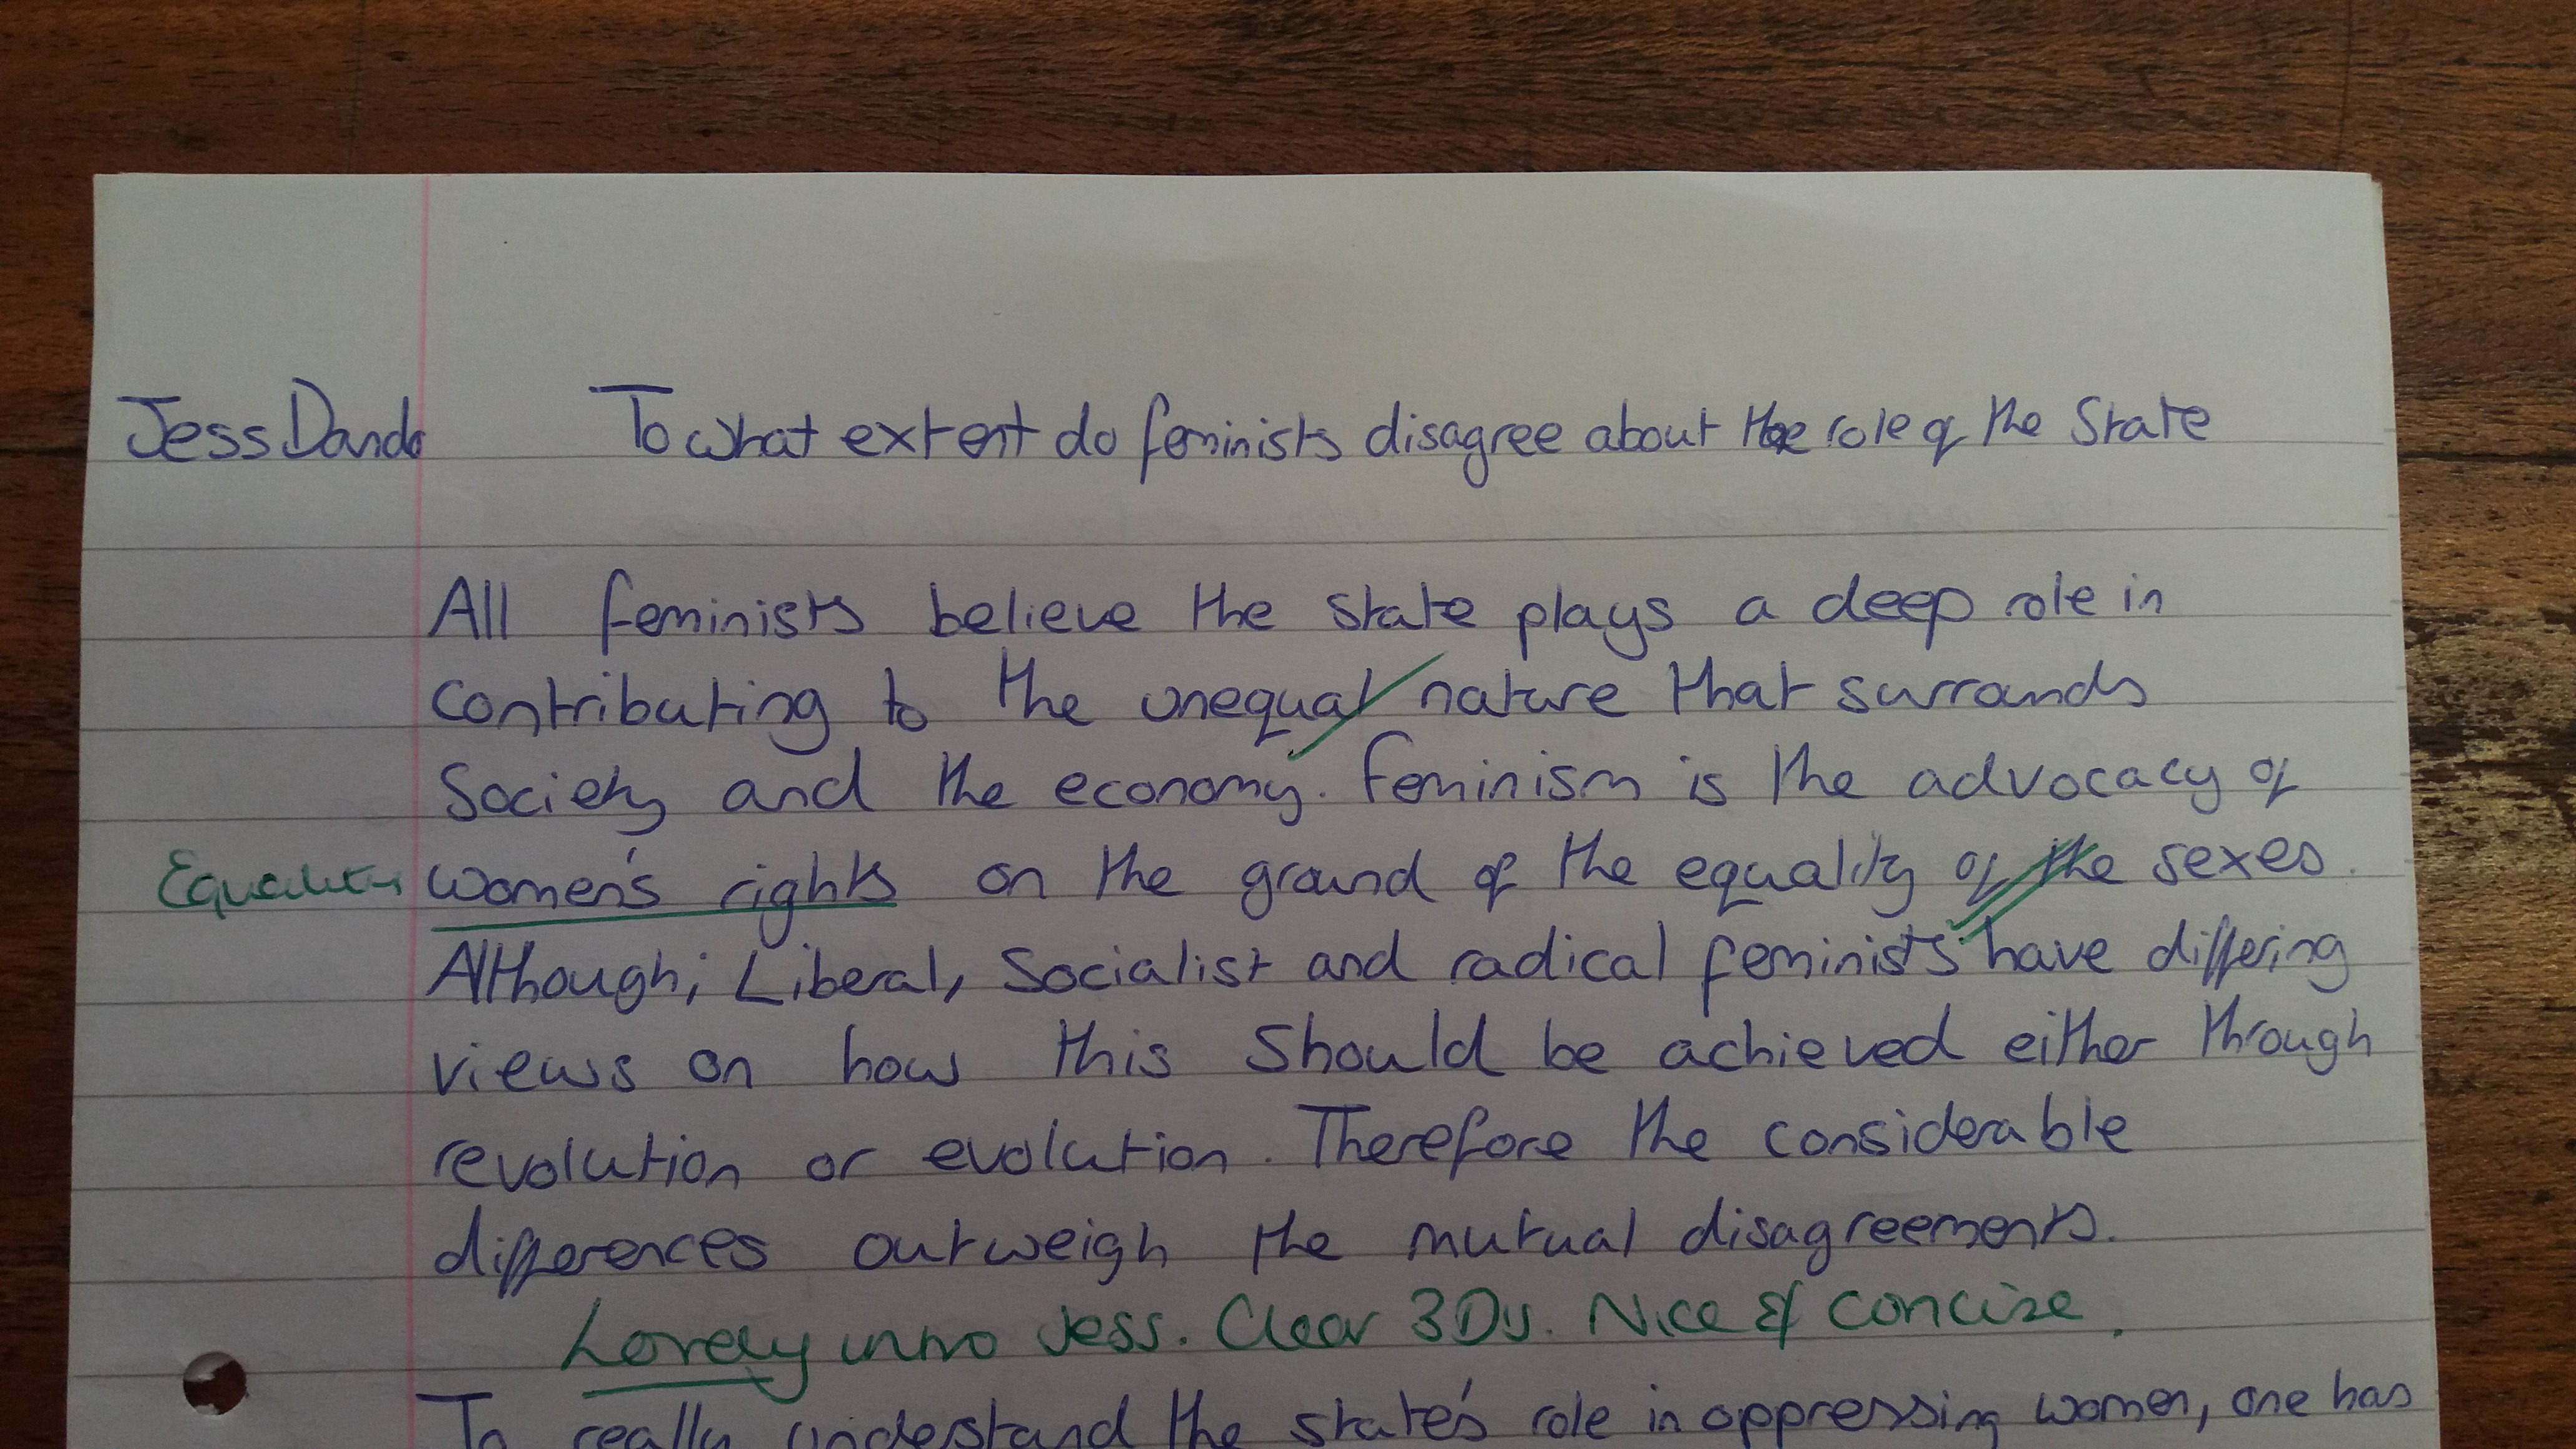 Jess Dando To what extent do feminists disagree about the role of the State
All feminists believe the state plays a deep role in
contributing to the unequal nature that surrounds
Society and the economy. Feminism is the advocacy of
Equality women's rights on the ground of the equality of the sexes.
Although; Liberal, Socialist and radical feminists have differing
views on how this should be achieved either through
revolution or evolution. Therefore the considerable
differences outweigh the mutual disagreements.
Lovely intro Jess. Clear 3Ds. Nice & concise.
To really understand the state's role in oppressing women, one has